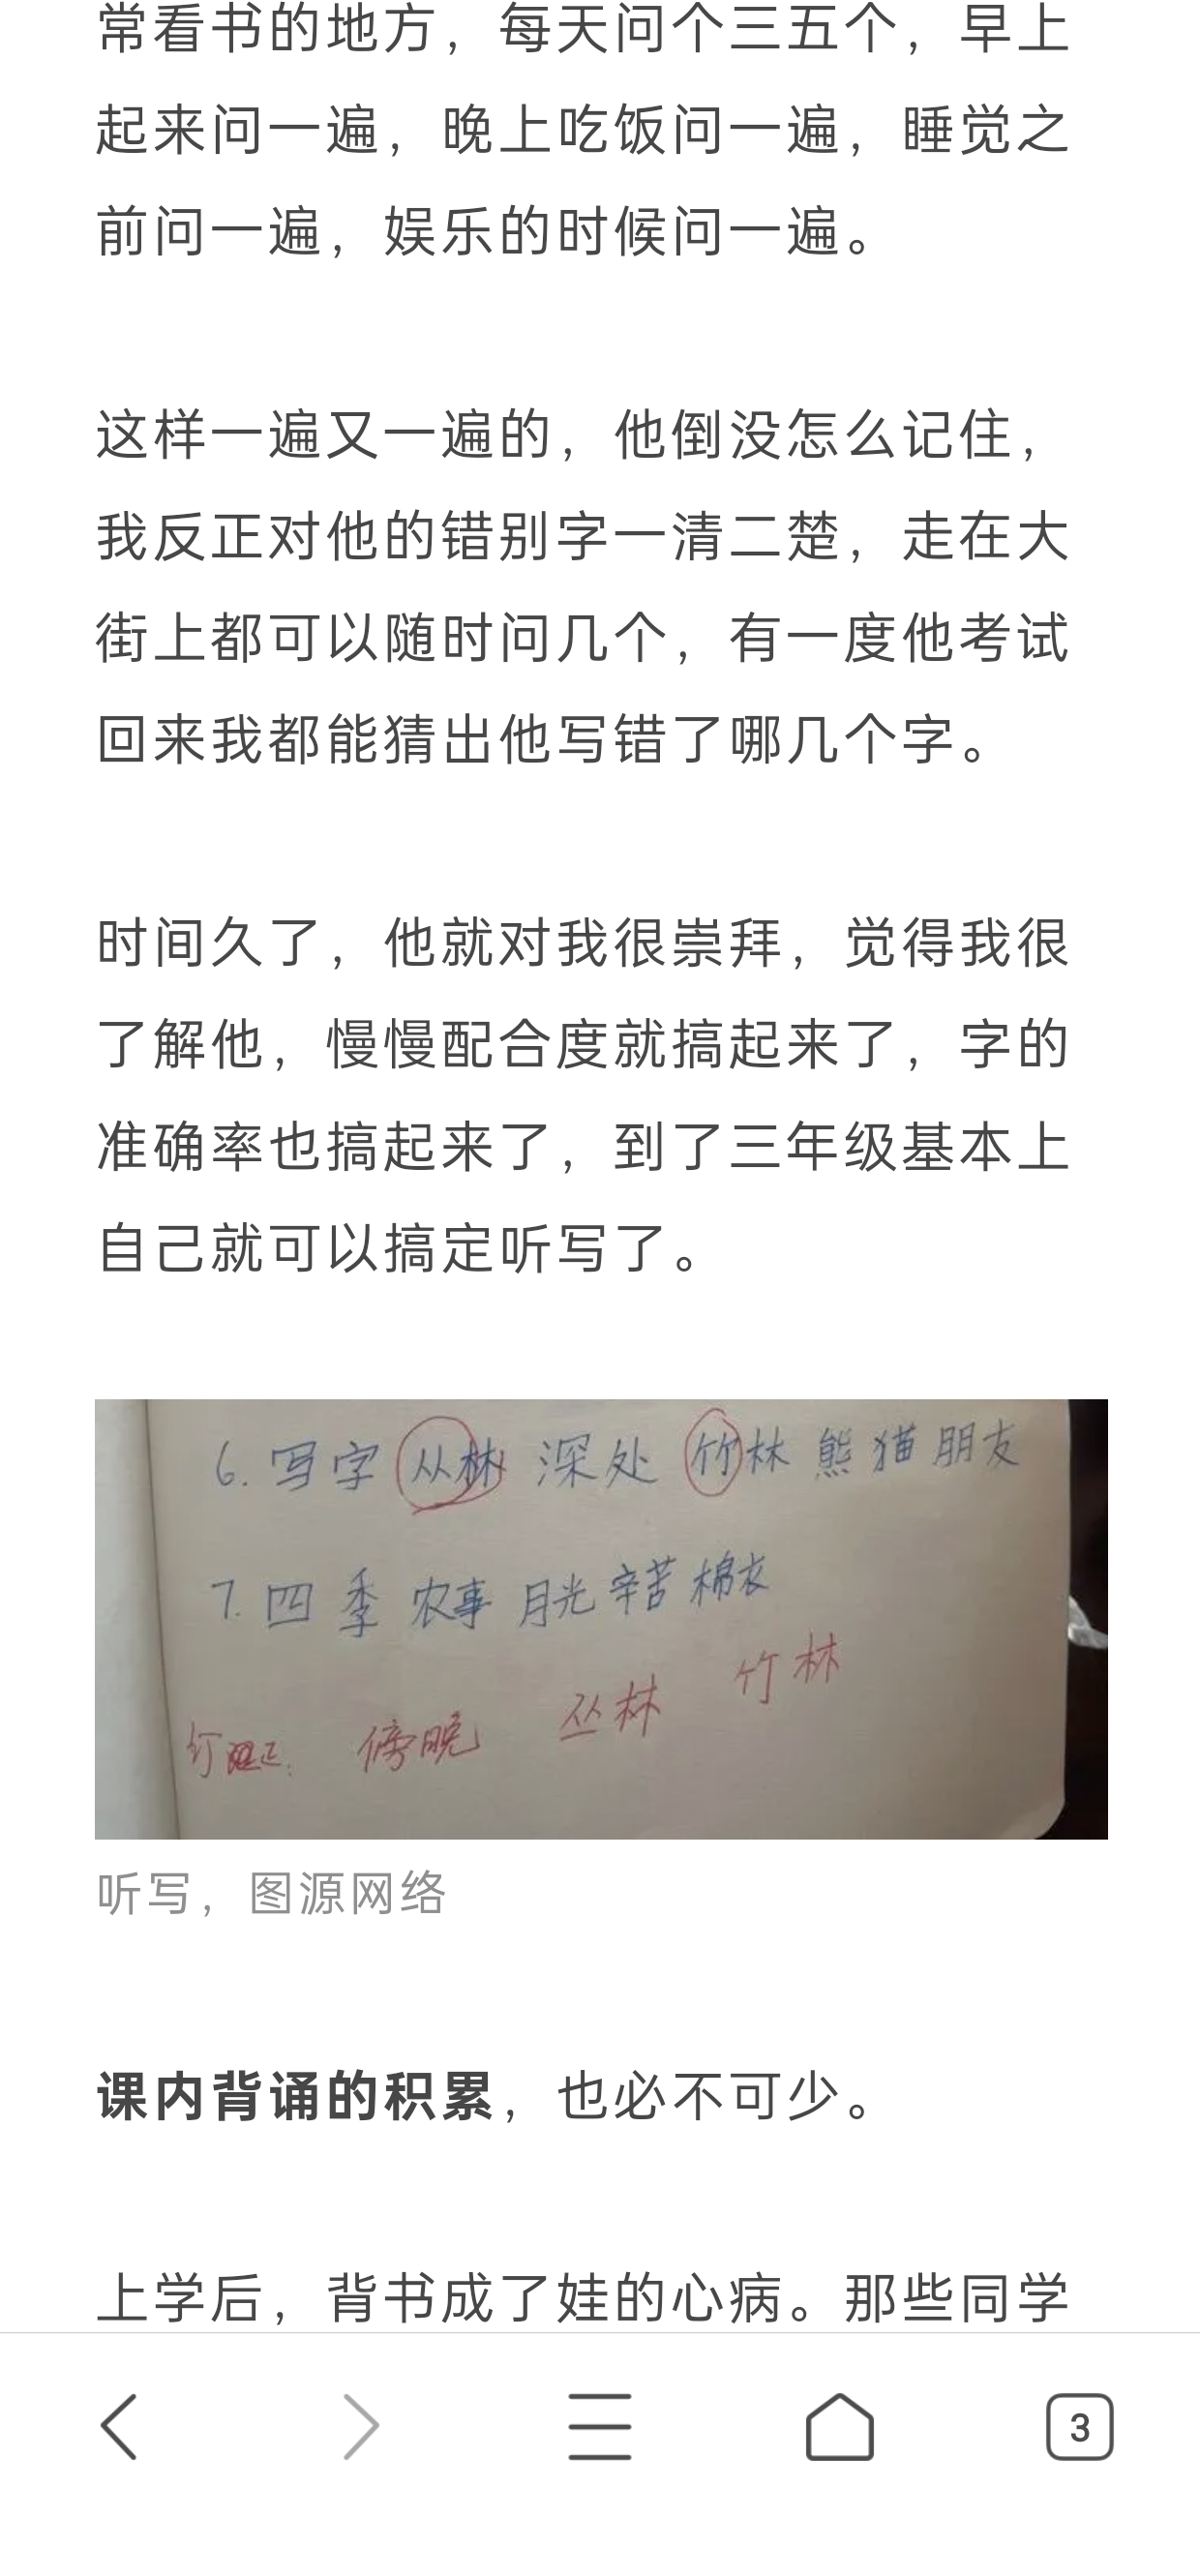 常看书的地方，每天问个三五个，早上
起来问一遍，晚上吃饭问一遍，睡觉之
前问一遍，娱乐的时候问一遍。
这样一遍又一遍的，他倒没怎么记住，
我反正对他的错别字一清二楚，走在大
街上都可以随时问几个，有一度他考试
回来我都能猜出他写错了哪几个字。
时间久了，他就对我很崇拜，觉得我很
了解他，慢慢配合度就搞起来了，字的
准确率也搞起来了，到了三年级基本上
自己就可以搞定听写了。
6. 写字 从林 深处 竹林 熊猫 朋友
7. 四季 农事 月光 辛苦 棉衣
订正: 傍晚 丛林 竹林
听写，图源网络
课内背诵的积累，也必不可少。
上学后，背书成了娃的心病。那些同学
3